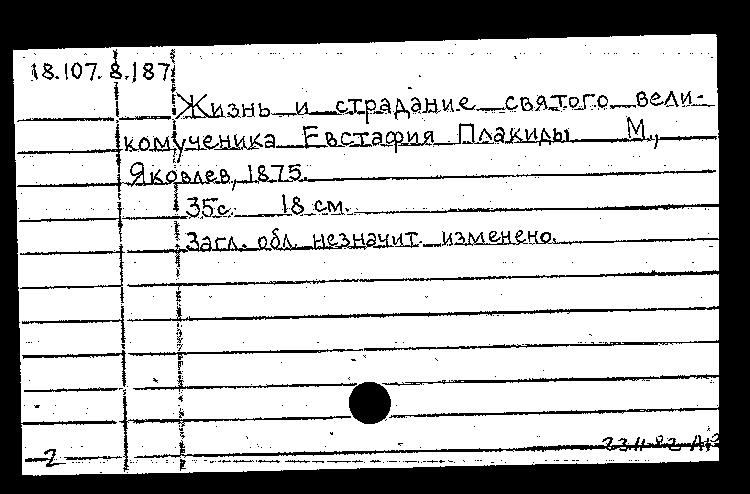 18.107.8.187
Жизнь и страдание святого вели-
комученика Евстафия Плакиды М.,
Яковлев, 1875.
35с. 18 см.
Загл. обл. незначит. изменено.
2